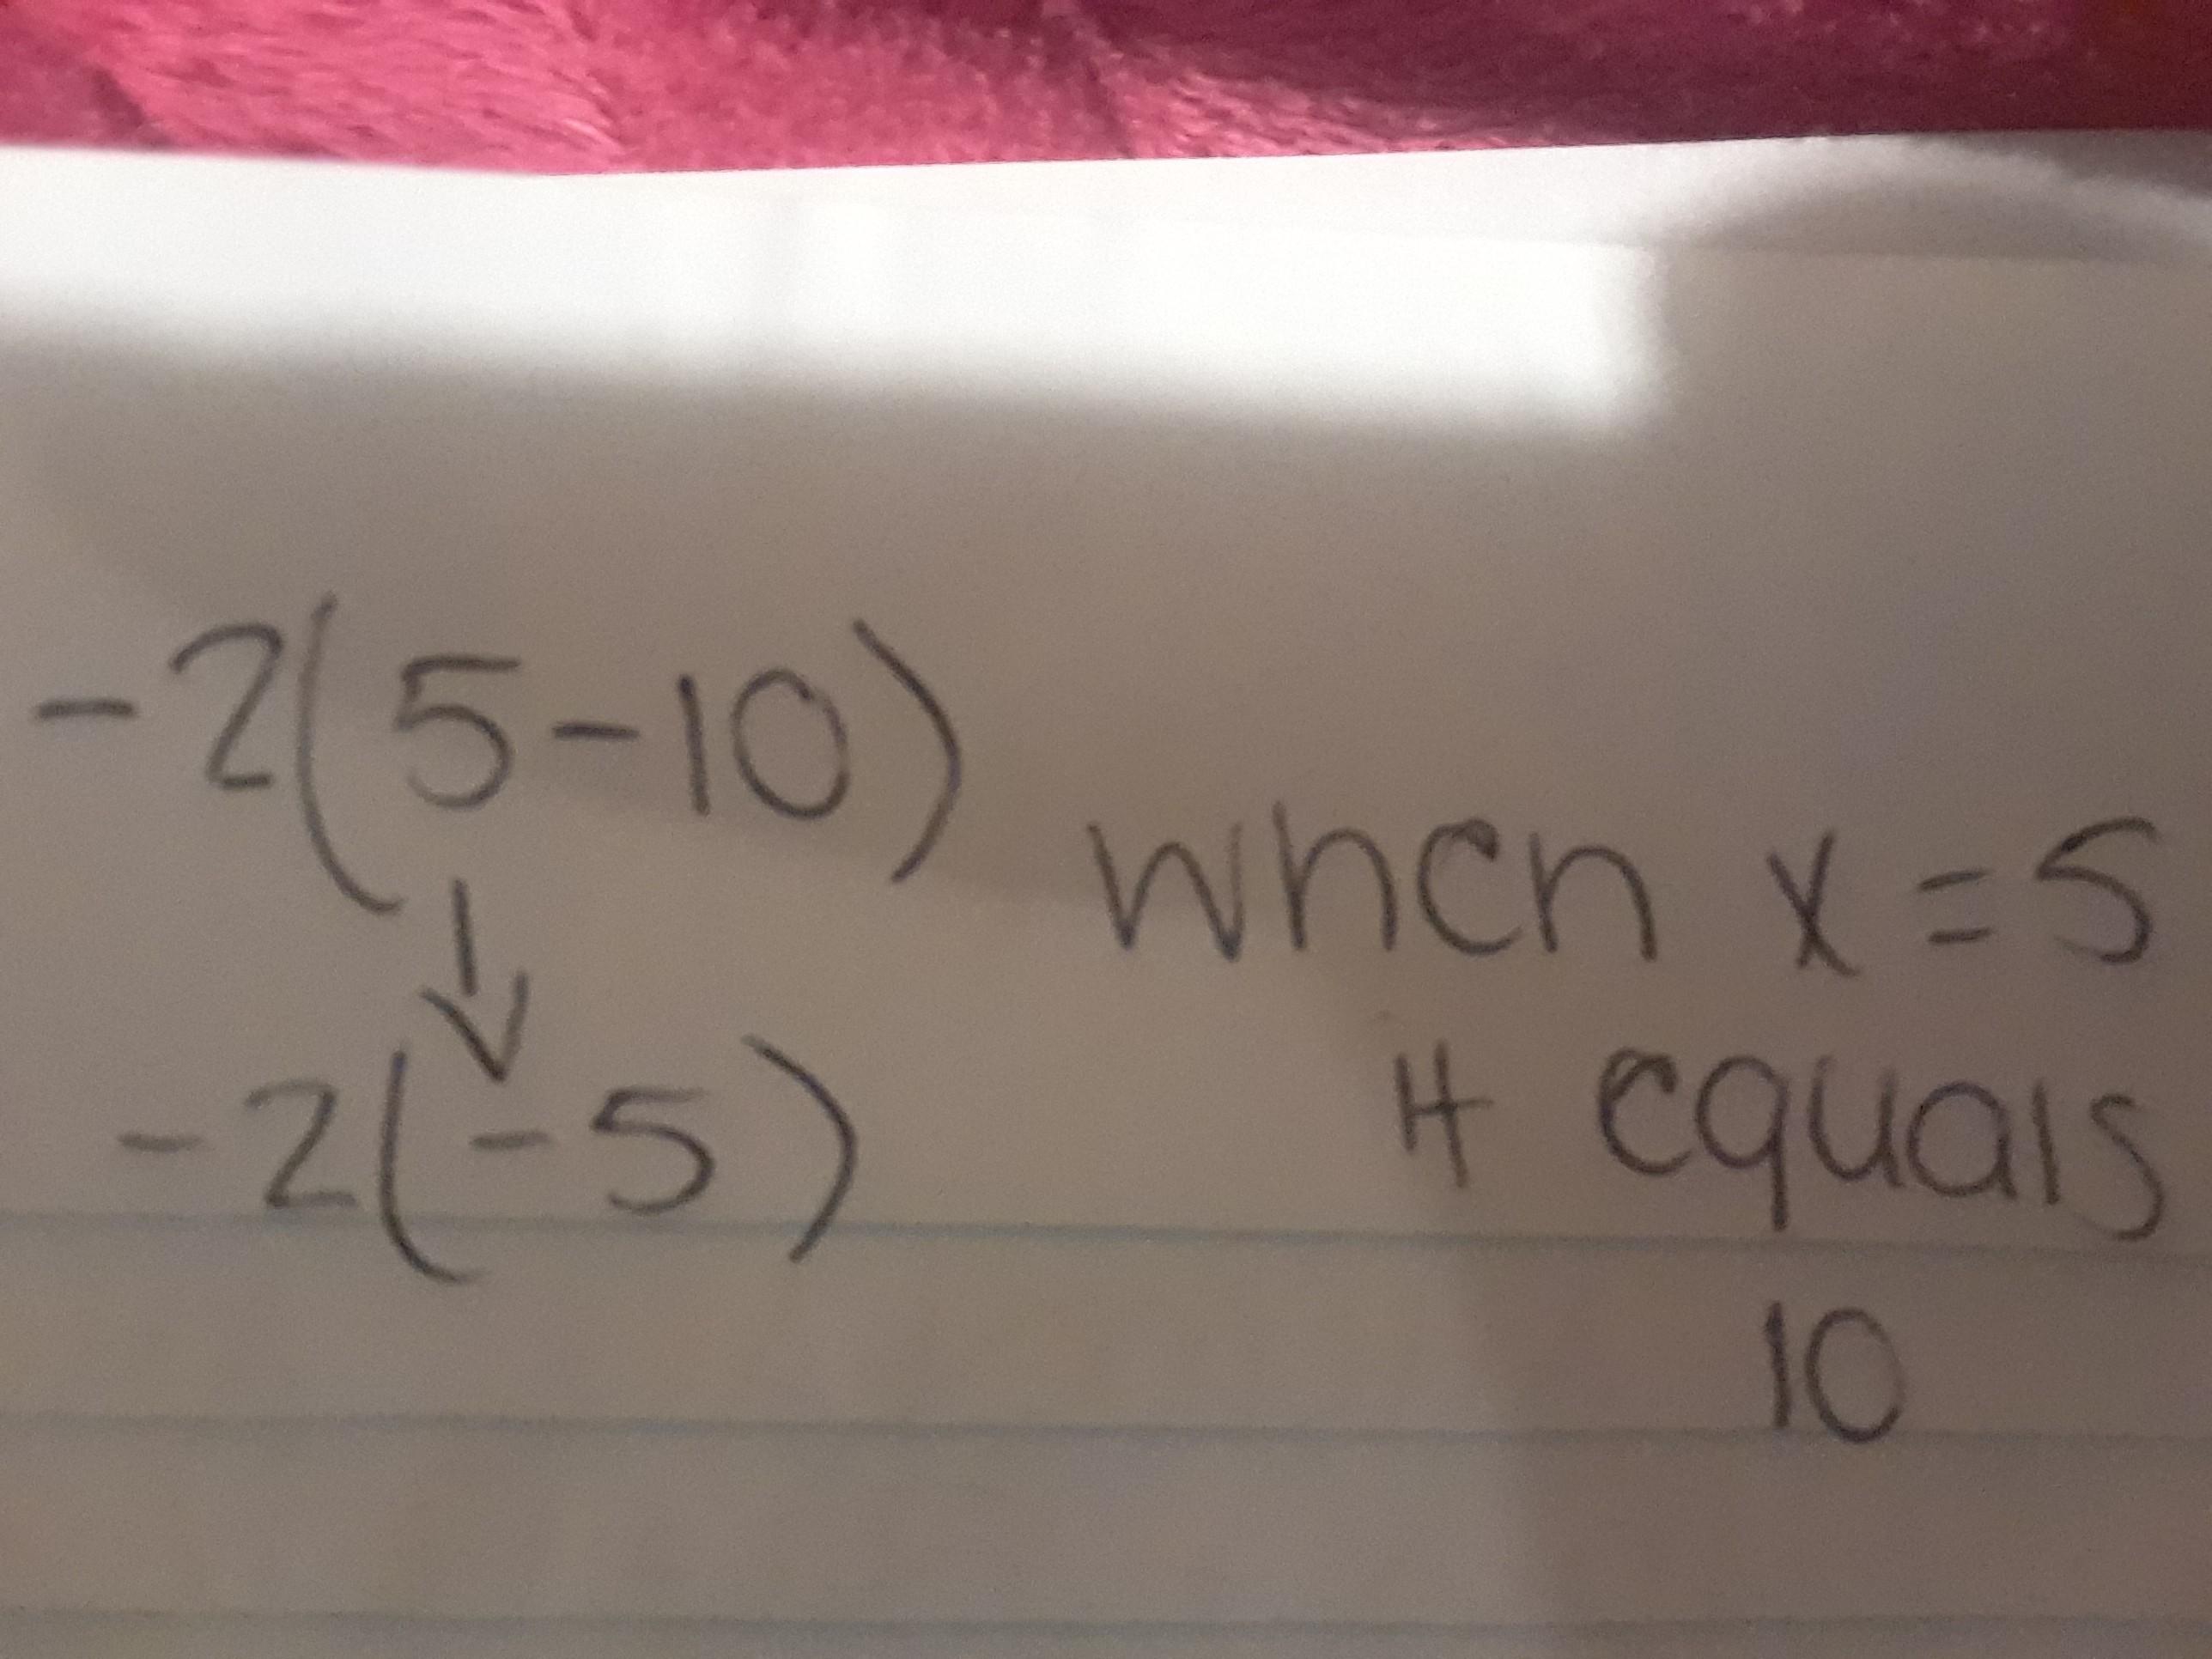 -2(5-10)
when x=5
-2(-5)
it equals
10